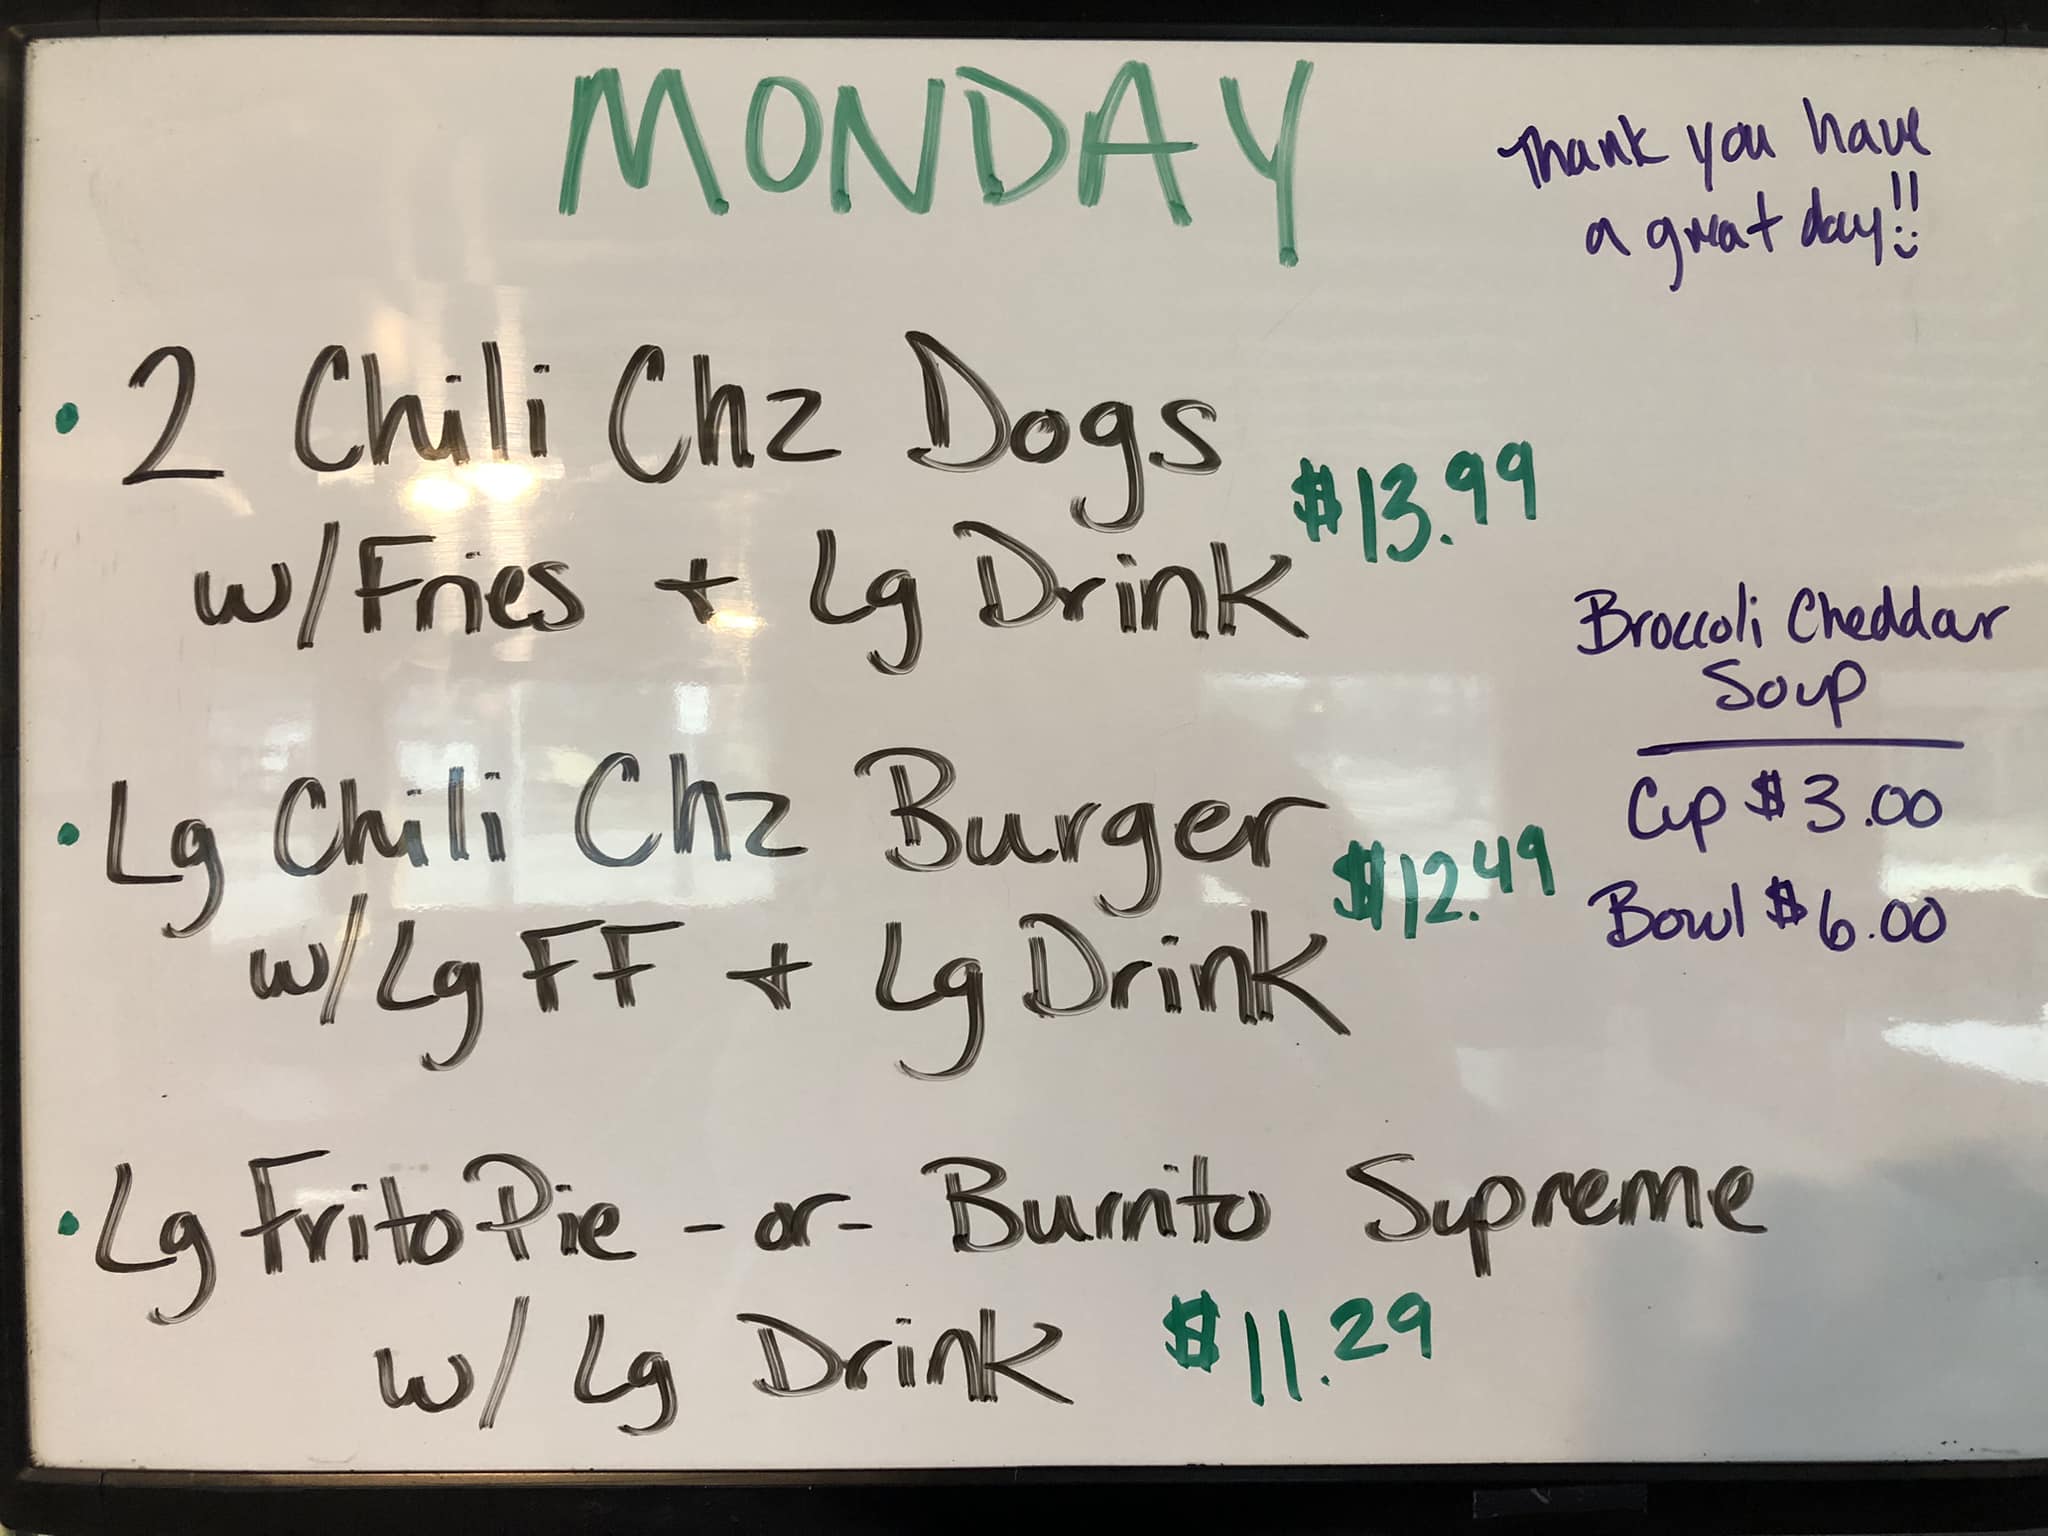 MONDAY
Thank you have
a great day!!
• 2 Chili Chz Dogs
w/Fries + Lg Drink $13.99
• Lg Chili Chz Burger
w/Lg FF + Lg Drink $12.49
• Lg Frito Pie - or - Burrito Supreme
w/ Lg Drink $11.29
Broccoli Cheddar
Soup
Cup $3.00
Bowl $6.00